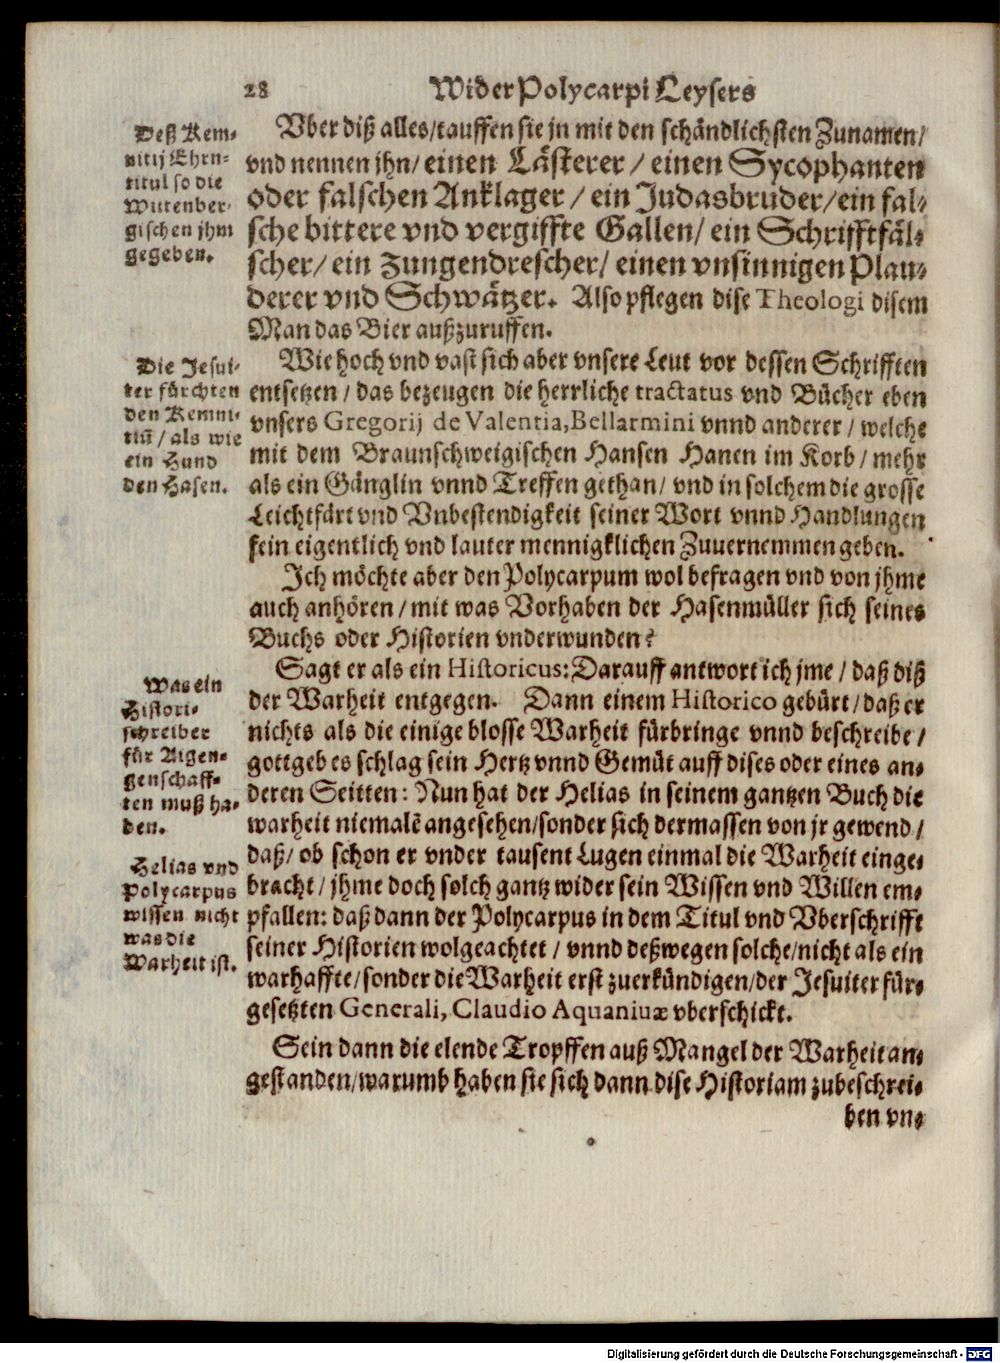 28 Wider Polycarpi Leysers
Deß Kem-
nitij Ehrn-
titul so die
Wittenber-
gischen jhm
gegeben.
Vber diß alles/tauffen sie jn mit den schändlichsten Zunamen/
vnd nennen jhn/ einen Lästerer / einen Sycophanten
oder falschen Anklager / ein Judasbruder/ein fal-
sche bittere vnd vergiffte Gallen/ ein Schrifftfäl-
scher/ ein Zungendrescher/ einen vnsinnigen Plau-
derer vnd Schwätzer. Also pflegen dise Theologi disem
Man das Bier außzuruffen.
Die Jesui-
ter förchten
den Kemni-
tiū / als wie
ein Hund
den Hasen.
Wie hoch vnd vast sich aber vnsere Leut vor dessen Schrifften
entsetzen / das bezeugen die herrliche tractatus vnd Bücher eben
vnsers Gregorij de Valentia, Bellarmini vnnd anderer / welche
mit dem Braunschweigischen Hansen Hanen im Korb / mehr
als ein Gänglin vnnd Treffen gethan/ vnd in solchem die grosse
Leichtfärt vnd Vnbestendigkeit seiner Wort vnnd Handlungen
fein eigentlich vnd lauter mennigklichen Zuuernemmen geben.
Ich möchte aber den Polycarpum wol befragen vnd von jhme
auch anhören / mit was Vorhaben der Hasenmüller sich seines
Buchs oder Historien vnderwunden?
Was ein
Histori-
schreiber
für Aigen-
genschaff-
ten muß ha-
ben.
Sagt er als ein Historicus: Darauff antwort ich jme / daß diß
der Warheit entgegen. Dann einem Historico gebürt/ daß er
nichts als die einige blosse Warheit fürbringe vnnd beschreibe /
gott geb es schlag sein Hertz vnnd Gemüt auff dises oder eines an-
deren Seitten: Nun hat der Helias in seinem gantzen Buch die
warheit niemalē angesehen/sonder sich dermassen von jr gewend /
Helias vnd
Polycarpus
wissen nicht
was die
Warheit ist.
daß/ ob schon er vnder tausent Lugen einmal die Warheit einge-
bracht / jhme doch solch gantz wider sein Wissen vnd Willen em-
pfallen: daß dann der Polycarpus in dem Titul vnd Vberschrifft
seiner Historien wolgeachtet / vnnd deßwegen solche/nicht als ein
warhaffte/ sonder die Warheit erst zuerkündigen/der Jesuiter für-
gesetzten Generali, Claudio Aquaniuæ vberschickt.
Sein dann die elende Tropffen auß Mangel der Warheit an-
gestanden/warumb haben sie sich dann dise Historiam zubeschrei-
ben vn-
Digitalisierung gefördert durch die Deutsche Forschungsgemeinschaft - DFG